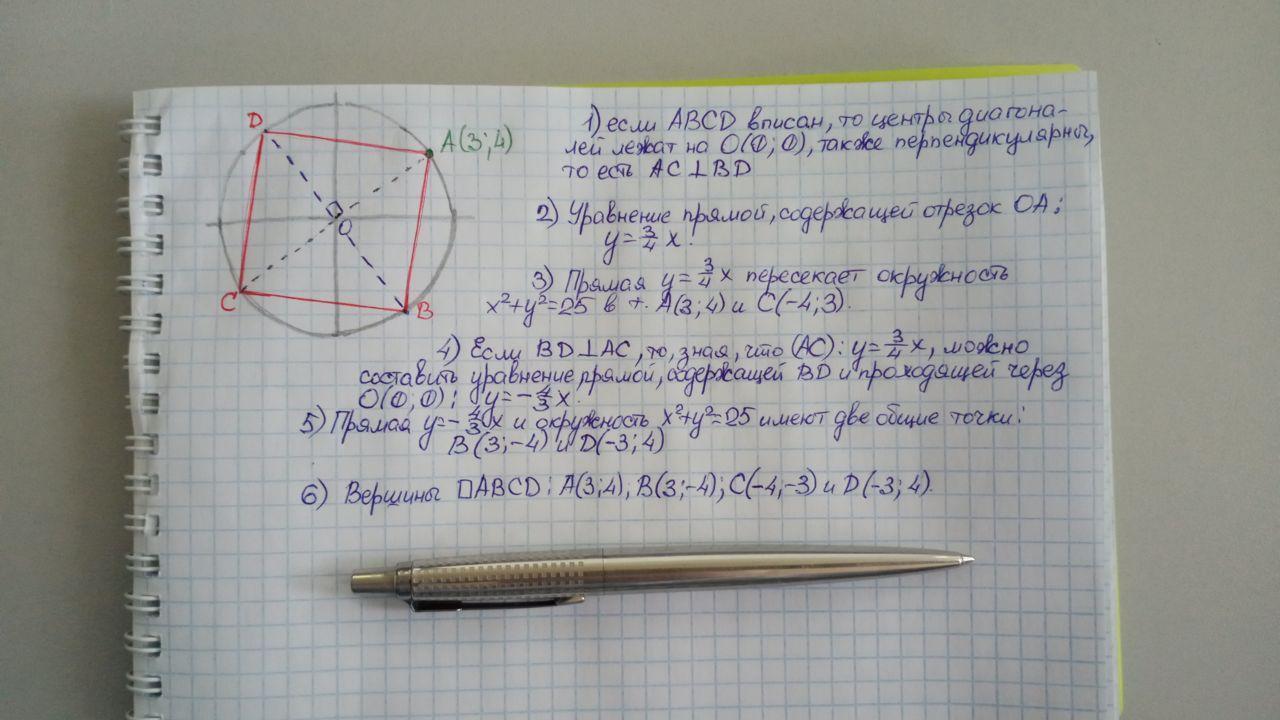 D
A(3;4)
O
C
B
1) если ABCD вписан, то центры диагона-
лей лежат на O(0;0), также перпендикулярны,
то есть AC⊥BD
2) Уравнение прямой, содержащей отрезок OA:
y=3/4 x.
3) Прямая y=3/4 x пересекает окружность
x²+y²=25 в т. A(3;4) и C(-4;3).
4) Если BD⊥AC, то, зная, что (AC): y=3/4 x, можно
составить уравнение прямой, содержащей BD и проходящей через
O(0;0): y=-4/3 x.
5) Прямая y=-4/3 x и окружность x²+y²=25 имеют две общие точки:
B(3;-4) и D(-3;4)
6) Вершины □ABCD: A(3;4); B(3;-4); C(-4;-3) и D(-3;4).